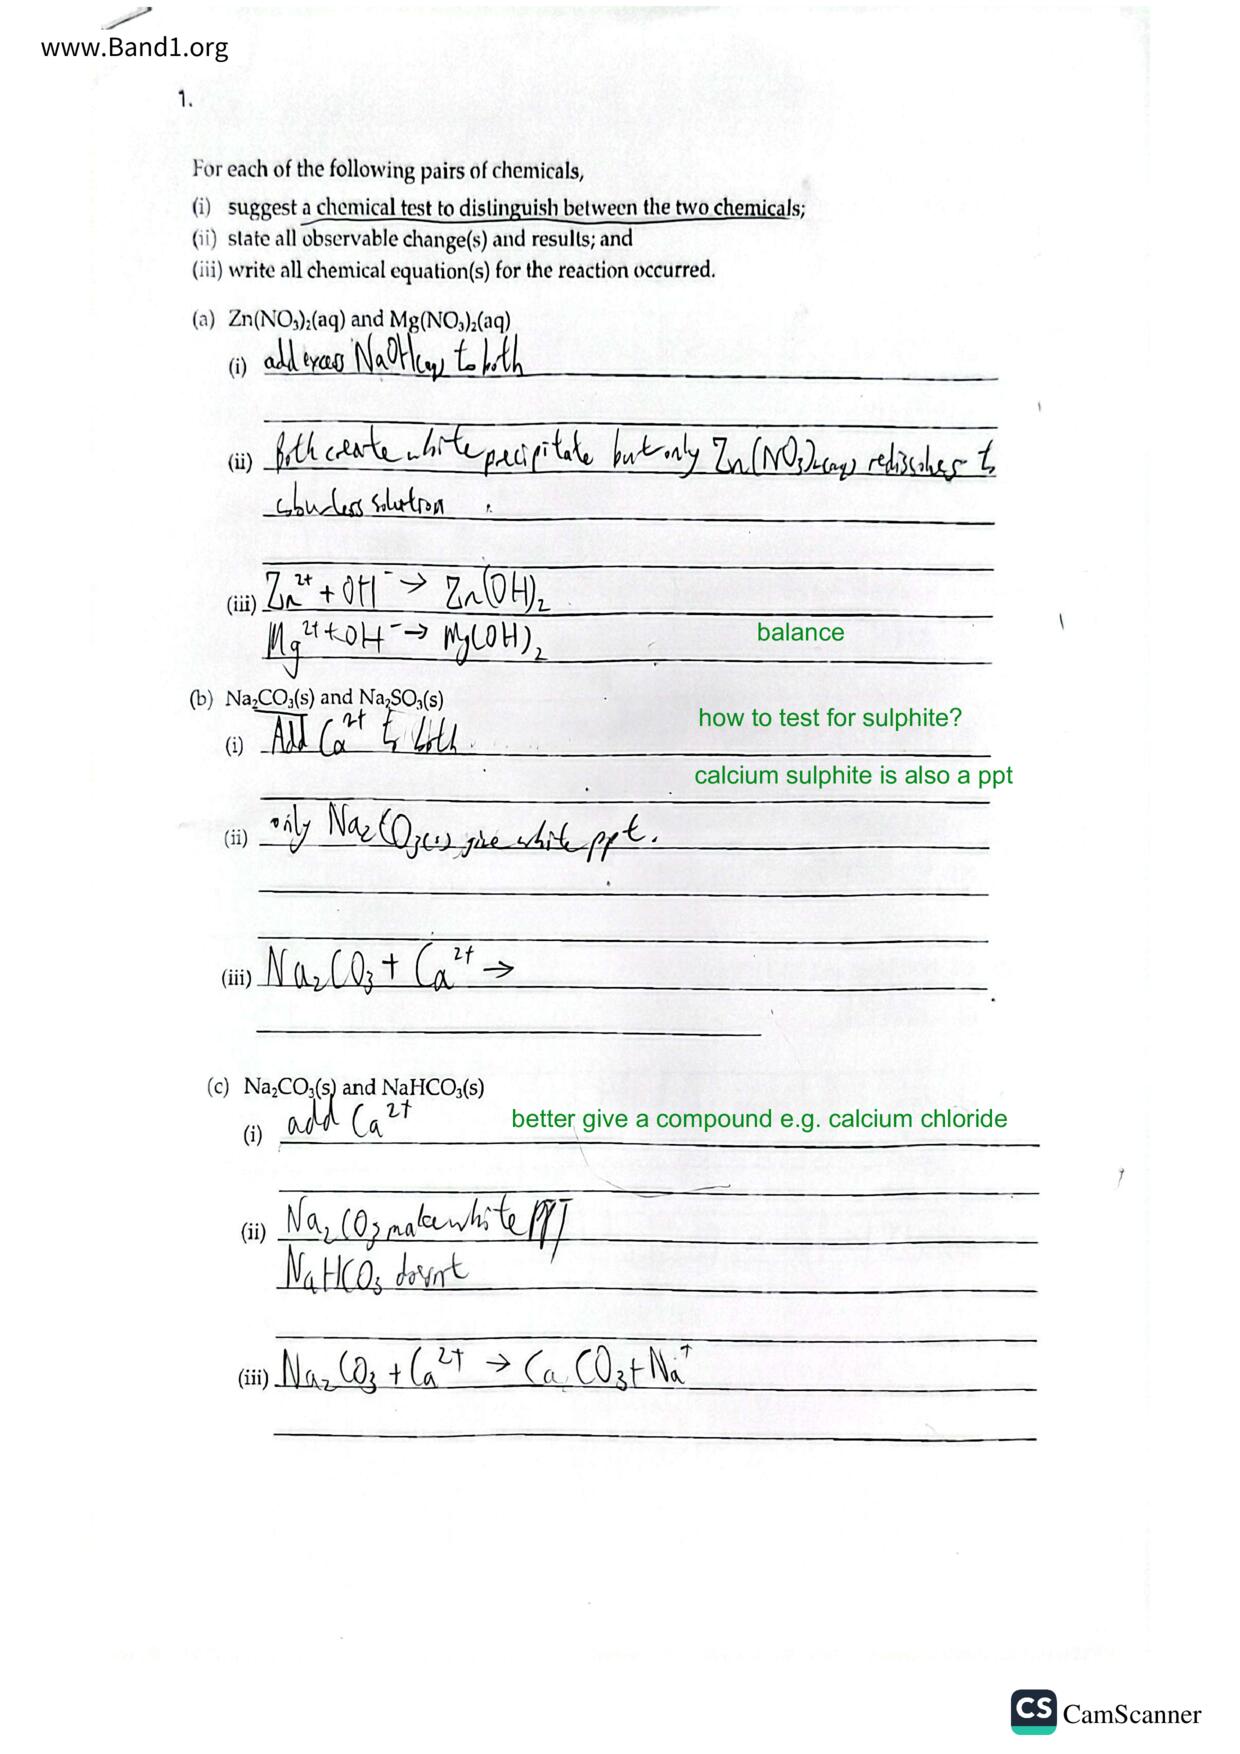 www.Band1.org
1.
For each of the following pairs of chemicals,
(i) suggest a chemical test to distinguish between the two chemicals;
(ii) state all observable change(s) and results; and
(iii) write all chemical equation(s) for the reaction occurred.
(a) Zn(NO₃)₂(aq) and Mg(NO₃)₂(aq)
(i) add excess NaOH(aq) to both
(ii) Both create white precipitate but only Zn(NO₃)₂(aq) redissolves to
colourless solution
(iii) Zn²⁺ + OH⁻ → Zn(OH)₂
Mg²⁺ + OH⁻ → Mg(OH)₂
balance
(b) Na₂CO₃(s) and Na₂SO₃(s)
how to test for sulphite?
(i) Add Ca²⁺ to both
calcium sulphite is also a ppt
(ii) only Na₂CO₃(s) give white ppt.
(iii) Na₂CO₃ + Ca²⁺ →
(c) Na₂CO₃(s) and NaHCO₃(s)
(i) add Ca²⁺
better give a compound e.g. calcium chloride
(ii) Na₂CO₃ make white PPT
NaHCO₃ doesnt
(iii) Na₂CO₃ + Ca²⁺ → CaCO₃ + Na⁺
CS CamScanner